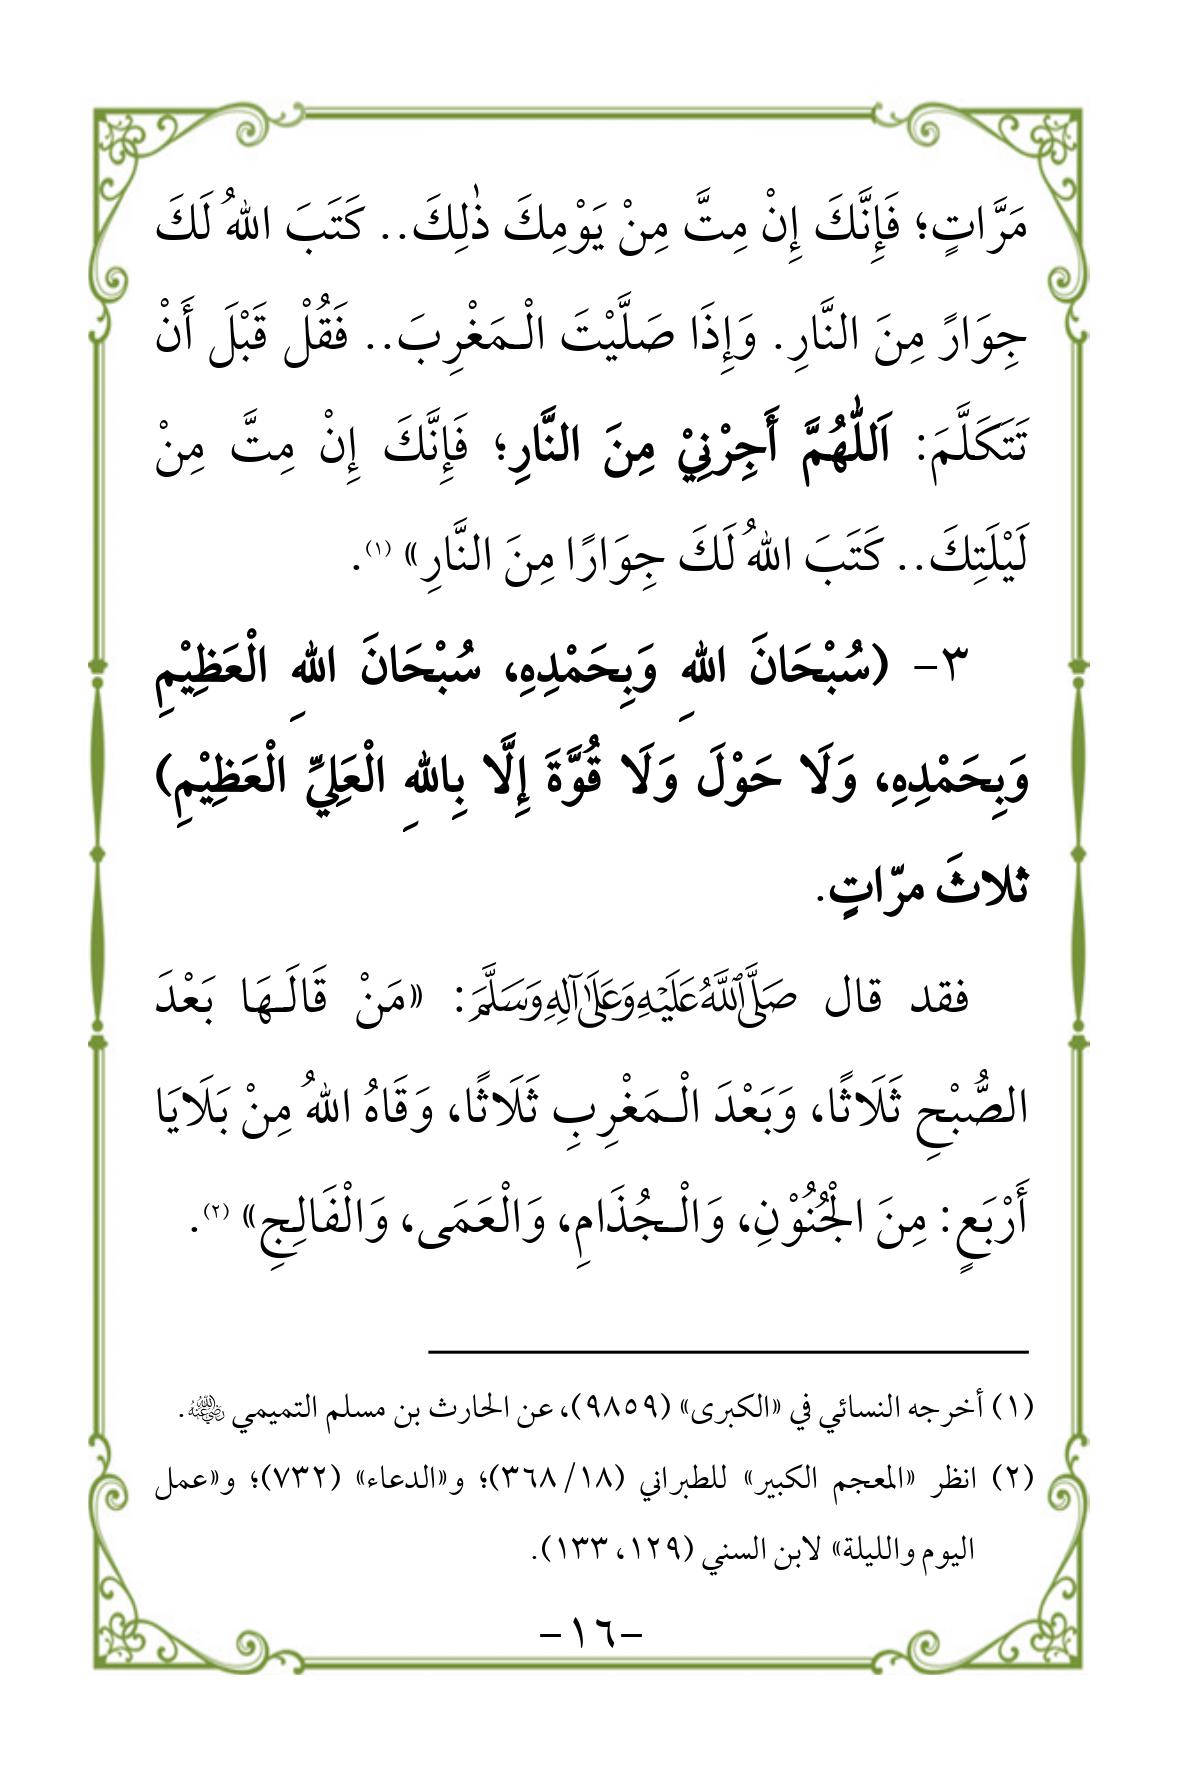 مَرَّاتٍ؛ فَإِنَّكَ إِنْ مِتَّ مِنْ يَوْمِكَ ذٰلِكَ.. كَتَبَ اللهُ لَكَ
جِوَارً مِنَ النَّارِ. وَإِذَا صَلَّيْتَ الْـمَغْرِبَ.. فَقُلْ قَبْلَ أَنْ
تَتَكَلَّمَ: اَللّٰهُمَّ أَجِرْنِيْ مِنَ النَّارِ؛ فَإِنَّكَ إِنْ مِتَّ مِنْ
لَيْلَتِكَ.. كَتَبَ اللهُ لَكَ جِوَارًا مِنَ النَّارِ» (١).
٣- (سُبْحَانَ اللهِ وَبِحَمْدِهِ، سُبْحَانَ اللهِ الْعَظِيْمِ
وَبِحَمْدِهِ، وَلَا حَوْلَ وَلَا قُوَّةَ إِلَّا بِاللهِ الْعَلِيِّ الْعَظِيْمِ)
ثلاثَ مرّاتٍ.
فقد قال صَلَّى اللَّهُ عَلَيْهِ وَعَلَىٰ آلِهِ وَسَلَّمَ: «مَنْ قَالَـهَا بَعْدَ
الصُّبْحِ ثَلَاثًا، وَبَعْدَ الْـمَغْرِبِ ثَلَاثًا، وَقَاهُ اللهُ مِنْ بَلَايَا
أَرْبَعٍ: مِنَ الْجُنُوْنِ، وَالْـجُذَامِ، وَالْعَمَى، وَالْفَالِجِ» (٢).
(١) أخرجه النسائي في «الكبرى» (٩٨٥٩)، عن الحارث بن مسلم التميمي رضي الله عنه.
(٢) انظر «المعجم الكبير» للطبراني (١٨/ ٣٦٨)؛ و«الدعاء» (٧٣٢)؛ و«عمل
اليوم والليلة» لابن السني (١٢٩، ١٣٣).
-١٦-